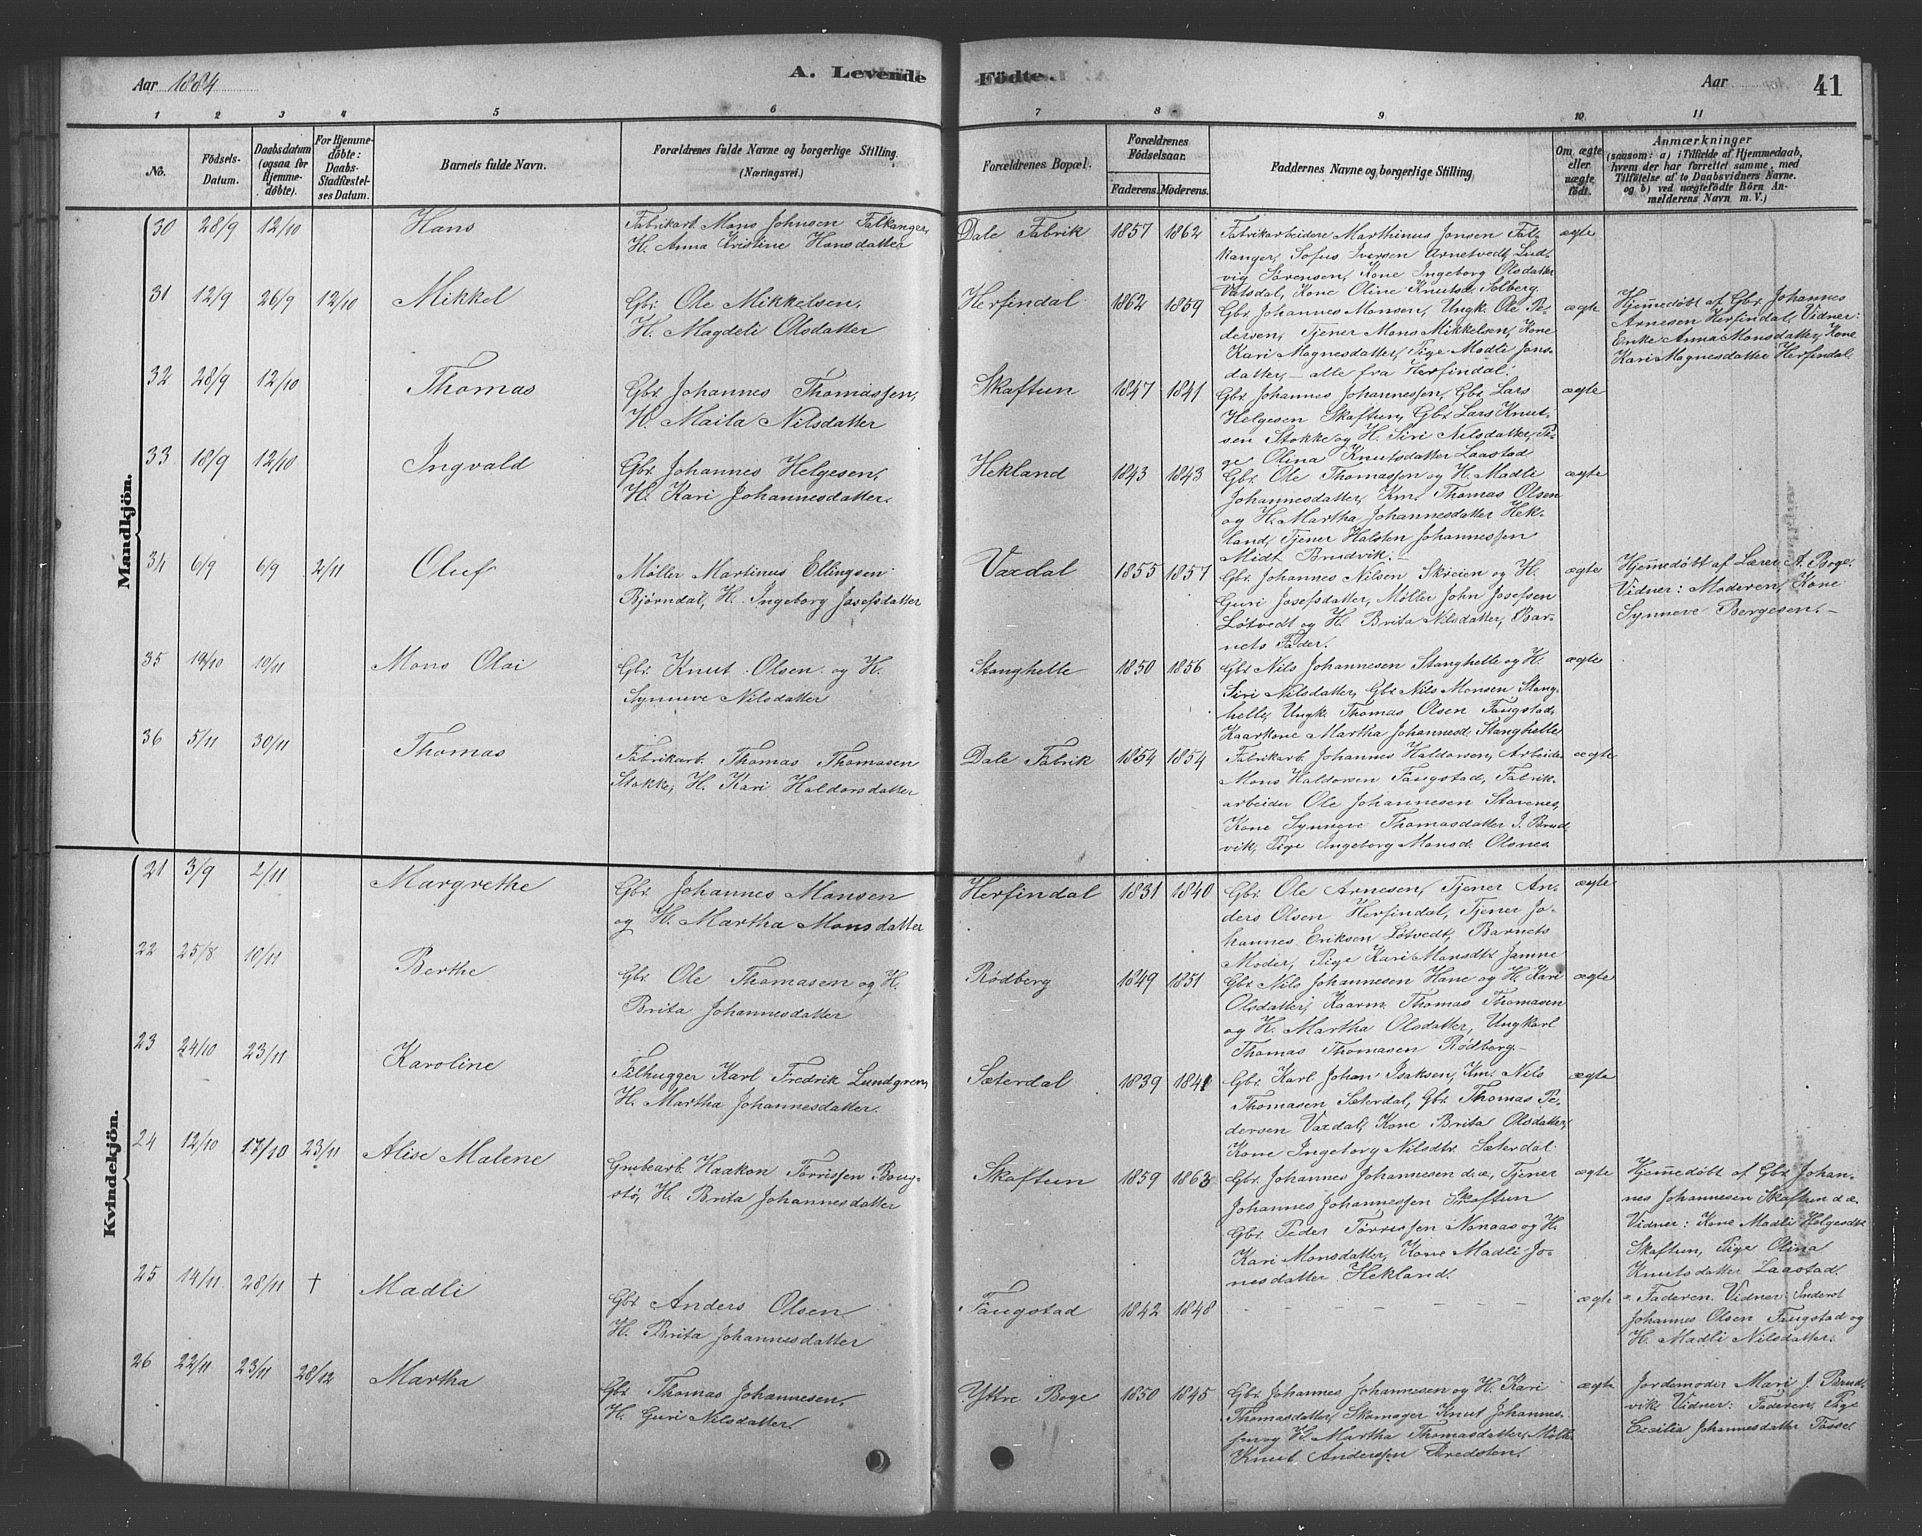 Aar 1884
A. Levende
Fødte.
Aar
41
1 2 3 4 5 6 7 8 9 10 11
No.
Fødsels-
Datum.
Daabsdatum
(ogsaa for
Hjemme-
døbte).
For Hjemme-
døbte:
Daabs-
Stadfæstel-
ses Datum.
Barnets fulde Navn.
Forældrenes fulde Navne og borgerlige Stilling.
(Næringsvei.)
Forældrenes Bopæl.
Forældrenes
Fødselsaar.
Faderens. Moderens.
Faddernes Navne og borgerlige Stilling
Om ægte
eller
uægte
født.
Anmærkninger
(saasom: a) i Tilfælde af Hjemmedaab,
hvem der har forrettet samme, med
Tilføielse af to Daabsvidners Navne.
og b) ved uægtefødte Børn An-
melderens Navn m. V.)
Mandkjøn.
30 28/9 12/10 Hans
Fabrikarb. Mons Johnsen Falkanger,
H. Anna Kristine Hansdatter
Dale Fabrik 1857 1862
Fabrikarbeidere Marthinus Jonsen Fal-
kanger, Sofus Iversen Arnetvedt, Lud-
vig Sørensen, Kone Ingeborg Olsdatter
Vatsdal, Kone Oline Knutsd. Solberg.
ægte
31 12/9 26/9 12/10 Mikkel
Gbr. Ole Mikkelsen,
H. Magdeli Olsdatter
Herfindal 1862 1859
Gbr. Johannes Monsen, Ungk. Ole Pe-
dersen, Tjener Mons Mikkelsen, Kone
Kari Magnesdatter, Pige Madli Jons-
datter, - alle fra Herfindal.
ægte
Hjemedøbt af Gbr. Johannes
Arnesen Herfindal, Vidner:
Enke Anna Monsdatter, Kone
Kari Magnesdatter Herfindal.
32 28/9 12/10 Thomas
Gbr. Johannes Thomassen,
H. Maila Nilsdatter
Skaftun 1847 1841
Gbr. Johannes Johannessen, Gbr. Lars
Helgesen Skaftun, Gbr. Lars Knut-
sen Stokke og H. Siri Nilsdatter, Pi-
ge Olina Knutsdatter Laastad
ægte
33 18/9 12/10 Ingvald
Gbr. Johannes Helgesen,
H. Kari Johannesdatter.
Hekland 1843 1843
Gbr. Ole Thomassen og H. Madli
Johannesdatter, Km. Thomas Olsen
og H. Martha Johannesdatter Hek-
land, Tjener Halsten Johannessen
Midt Brudvik. -
ægte
34 6/9 6/9 2/11 Oluf
Møller Martinus Ellingsen
Bjørndal, H. Ingeborg Josefsdatter
Vaxdal 1855 1857
Gbr. Johannes Nilsen Skreien og H.
Guri Josefsdatter, Møller John Josefsen
Løtvedt og H. Brita Nilsdatter, Bar-
nets Fader.
ægte
Hjemedøbt af Lærer A. Boge.
Vidner: Moderen, Kone
Synneve Bergesen. -
35 19/10 10/11 Mons Olai
Gbr. Knut Olsen og H.
Synneve Nilsdatter
Stanghelle 1850 1856
Gbr. Nils Johannesen Stanghelle og H.
Siri Nilsdatter, Gbr. Nils Monsen Stang-
helle, Ungk. Thomas Olsen Faugstad,
Kaarkone Martha Johannesd. Stanghelle
ægte
36 5/11 30/11 Thomas
Fabrikarb. Thomas Thomasen
Stokke, H. Kari Haldorsdatter
Dale Fabrik 1854 1854
Fabrikarb. Johannes Haldorsen, Arbeider
Mons Haldorsen Faugstad, Fabrik-
arbeider Ole Johannesen Stavenes,
Kone Synneve Thomasdatter I. Brud-
vik, Pige Ingeborg Monsd. Olsnes
ægte
Kvindekjøn.
21 3/9 2/11 Margrethe
Gbr. Johannes Monsen
og H. Martha Monsdatter
Herfindal 1831 1840
Gbr. Ole Arnesen, Tjener An-
ders Olsen Herfindal, Tjener Jo-
hannes Eriksen Løtvedt, Barnets
Moder, Pige Kari Monsdtr. Jamne
ægte
22 25/8 10/11 Berthe
Gbr. Ole Thomasen og H.
Brita Johannesdatter
Rødberg 1849 1851
Gbr. Nils Johannesen Hane og H. Kari
Olsdatter, Kaarm. Thomas Thomasen
og H. Martha Olsdatter, Ungkarl
Thomas Thomasen Rødberg. -
ægte
23 24/10 23/11 Karoline
Falhugger Karl Fredrik Lundgren,
H. Martha Johannesdatter.
Sæterdal 1839 1841
Gbr. Karl Johan Isaksen, Km. Nils
Thomasen Sæterdal, Gbr. Thomas Pe-
dersen Vaxdal, Kone Brita Olsdatter,
Kone Ingeborg Nilsdtr. Sæterdal.
ægte
24 12/10 17/10 23/11 Alise Malene
Grubearb. Haaken Torrissen Boug-
stø, H. Brita Johannesdatter
Skaftun 1859 1863
Gbr. Johannes Johannesen d.æ., Tjener
Johannes Johannessen Skaftun
Gbr. Peder Torrissen Nonaas og H.
Kari Monsdatter, Kone Madli Jo-
nesdatter Hekland.
ægte
Hjemedøbt af Gbr. Johan-
nes Johannesen Skaftun d.æ.
Vidner: Kone Madli Helgesdtr
Skaftun, Pige Olina
Knutsdatter Laastad.
25 14/11 28/11 † Madli
Gbr. Anders Olsen
H. Brita Johannesdatter
Faugstad 1842 1848
- - - - - -
ægte
Faderen. Vidner: Inderst
Johannes Olsen Faugstad og
H. Madli Nilsdatter.
26 22/11 23/11 28/12 Martha
Gbr. Thomas Johannesen,
H. Guri Nilsdatter.
Yttre Boge 1850 1845
Gbr. Johannes Johannesen og H. Kari
Thomasdatter, Skomager Knut Johannes-
sen og H. Martha Thomasdatter, Møller
Knut Anderssen Bredsten.
ægte
Jordemoder Mari J. Brud-
vik. Vidner: Faderen, Pige
Cecilia Johannesdatter Tøsse.